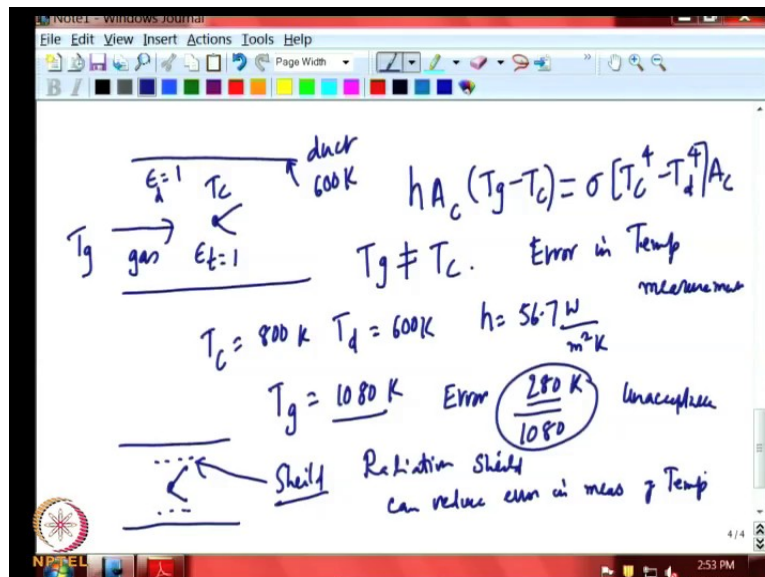 Note1 - Windows Journal
File Edit View Insert Actions Tools Help
Page Width
B I
duct
600 K
ϵd = 1 Tc
Tg gas ϵt = 1
h Ac (Tg - Tc) = σ [Tc^4 - Td^4] Ac
Tg ≠ Tc. Error in Temp
measurement
Tc = 800 K Td = 600K h = 56.7 W/m²K
Tg = 1080 K Error 280 K/1080
Sheild Radiation Sheild
can reduce error in meas of Temp
4/4
NPTEL
2:53 PM